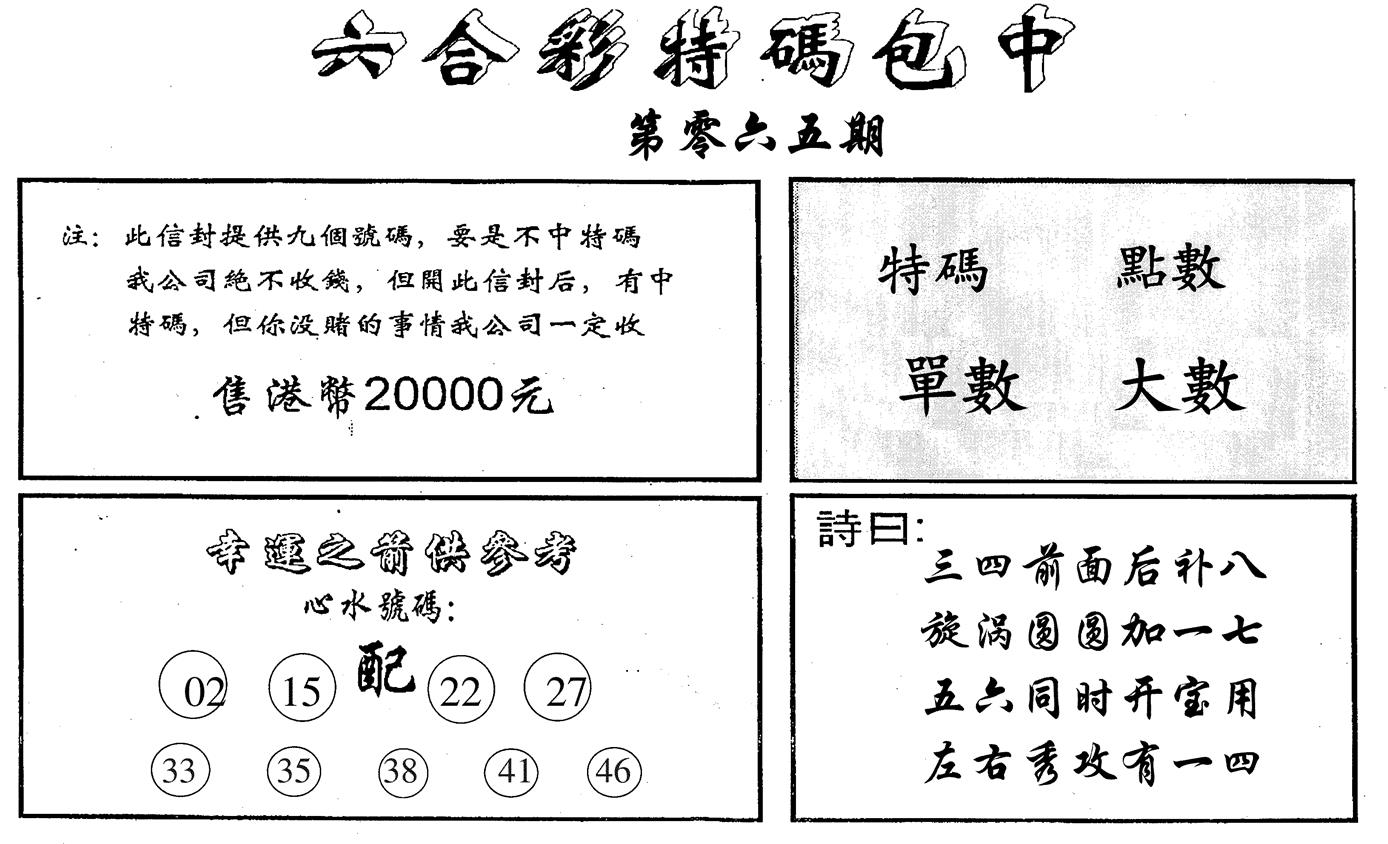 六合彩特碼包中
第零六五期
注：此信封提供九個號碼，要是不中特碼
我公司絕不收錢，但開此信封后，有中
特碼，但你没賭的事情我公司一定收
售港幣20000元
特碼 點數
單數 大數
幸運之箭供參考
心水號碼：
02 15 配 22 27
33 35 38 41 46
詩曰：
三四前面后补八
旋涡圆圆加一七
五六同时开宝用
左右秀攻有一四